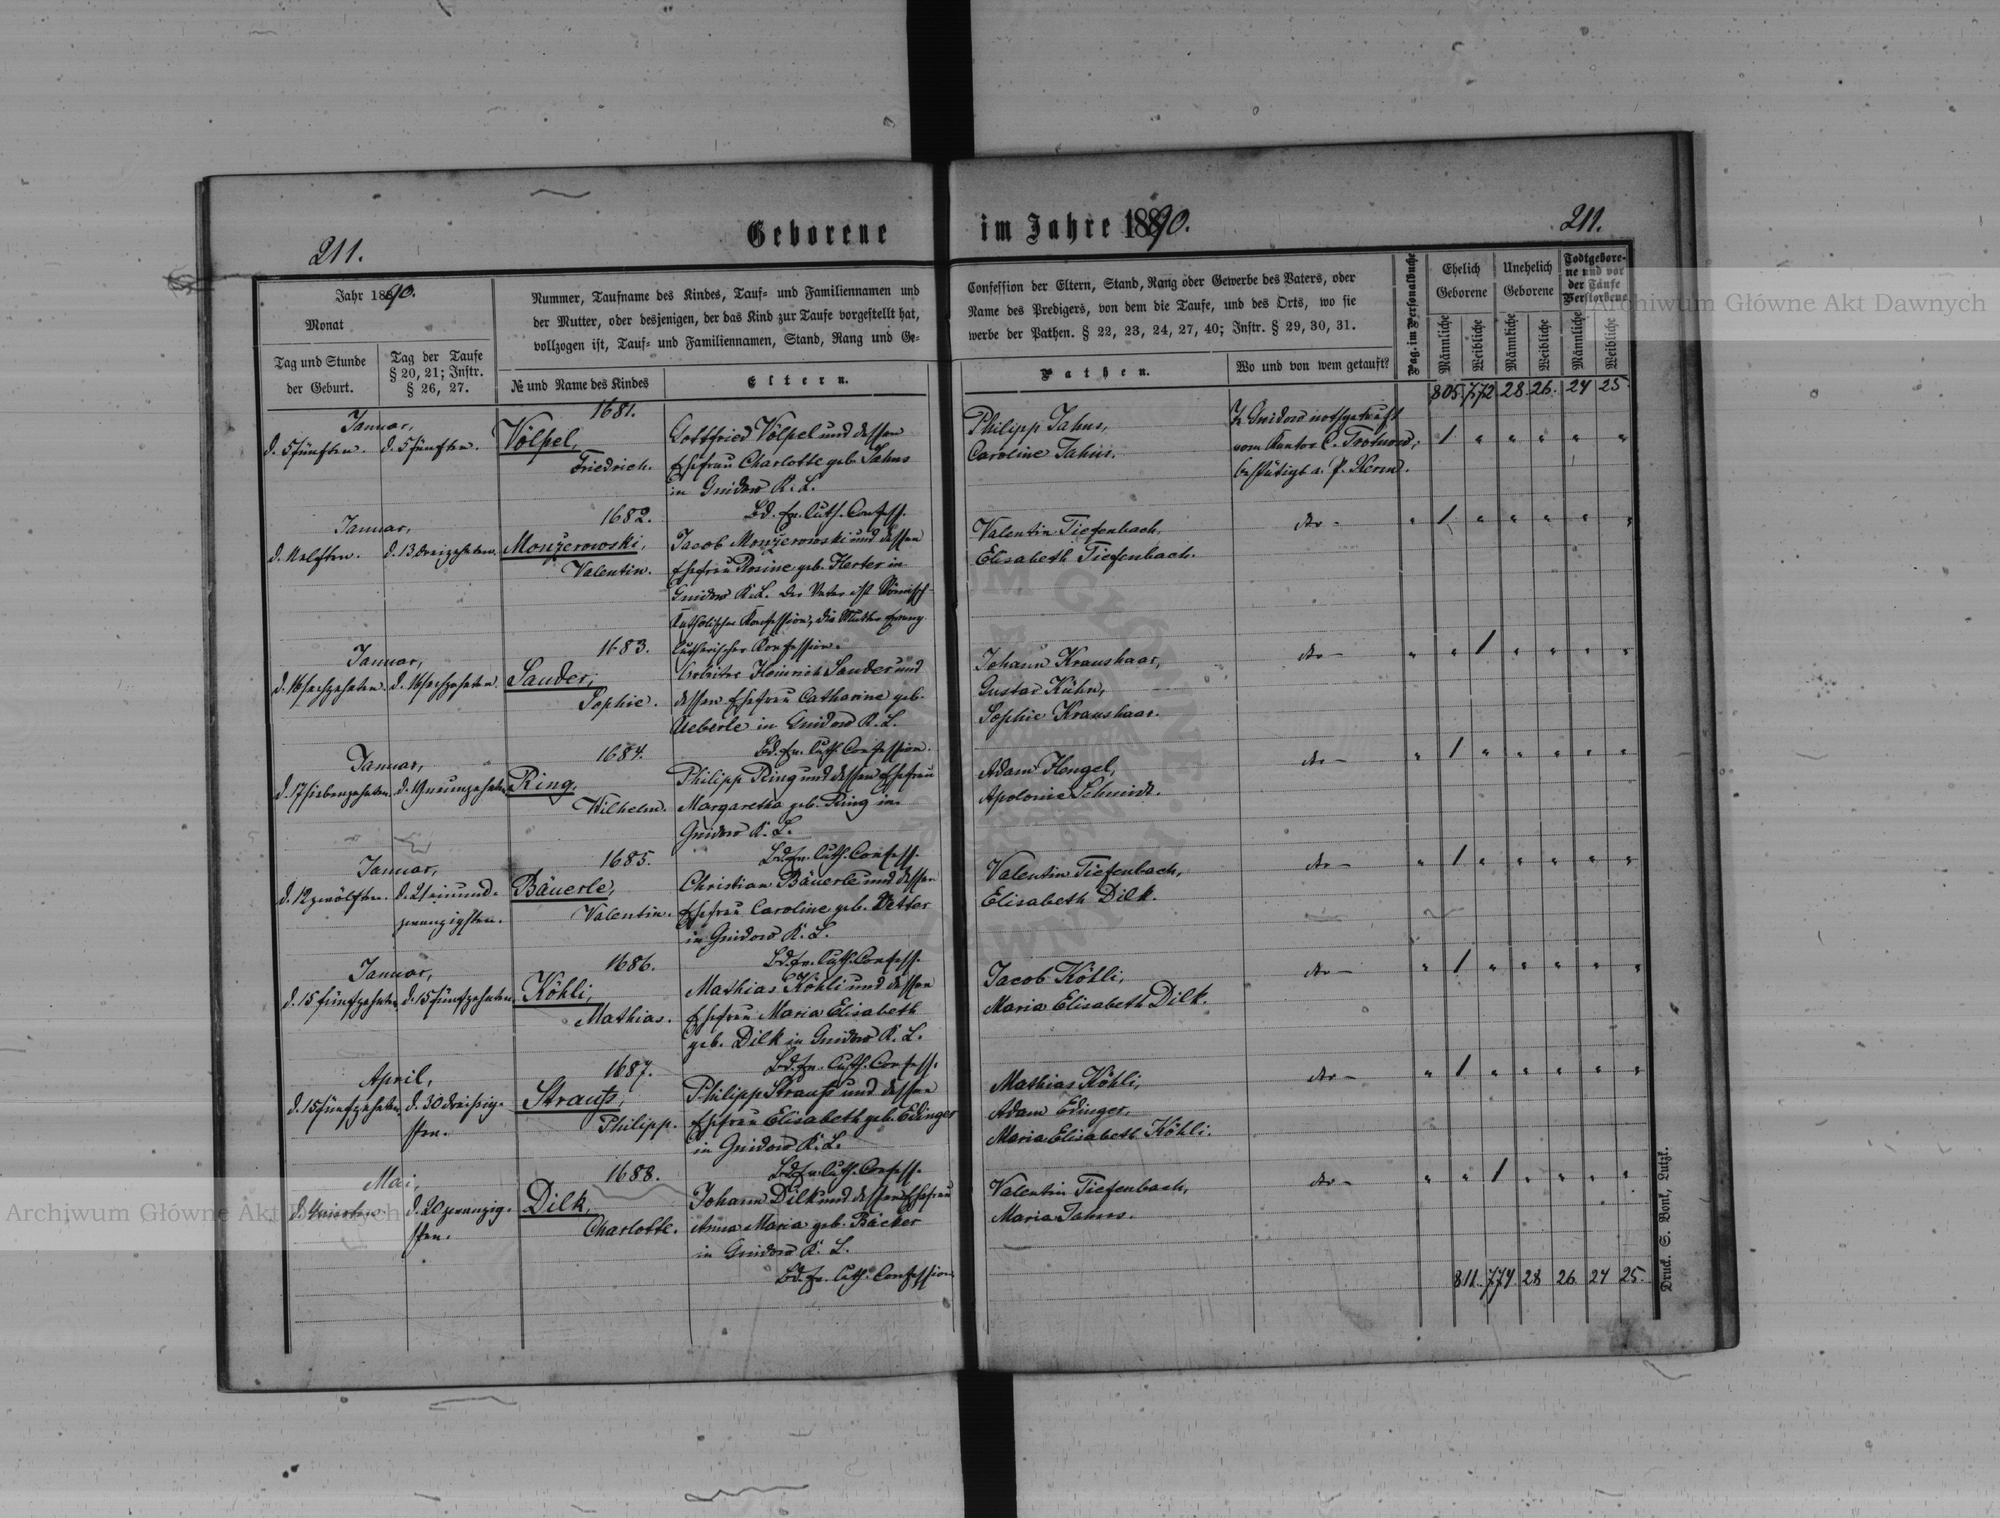 Geborene im Jahre 1890.
211.
211.
Jahr 1890.
Monat
Tag und Stunde
der Geburt.
Tag der Taufe
§ 20, 21; Instr.
§ 26, 27.
Nummer, Taufname des Kindes, Tauf- und Familiennamen und
der Mutter, oder desjenigen, der das Kind zur Taufe vorgestellt hat,
vollzogen ist, Tauf- und Familiennamen, Stand, Rang und Ge-
№ und Name des Kindes
Eltern.
Confession der Eltern, Stand, Rang oder Gewerbe des Vaters, oder
Name des Predigers, von dem die Taufe, und des Orts, wo sie
werbe der Pathen. § 22, 23, 24, 27, 40; Instr. § 29, 30, 31.
Pathen.
Wo und von wem getauft?
Pag. im Personalbuche
Ehelich
Geborene
Unehelich
Geborene
Todtgebore-
ne und vor
der Taufe
Verstorbene
Männliche
Weibliche
Männliche
Weibliche
Männliche
Weibliche
805. 772 28 26. 24 25.
Januar,
d. 5 fünften. d. 5 fünften.
1681.
Völpel,
Friedrich.
Gottfried Völpel und dessen
Ehefrau Charlotte geb. Jahns
in Gnidow K. L.
Bd. ev. luth. Confess.
Philipp Jahns,
Caroline Jahns.
Z. Gnidow nothgetauft
vom Kantor C.
bestätigt a. P. Kern.
1 " " " " "
Januar,
d. 11 elften. d. 13 dreizehnten.
1682.
Monżerowski,
Valentin.
Jacob Monżerowski und dessen
Ehefrau Rosine geb. Herter in
Gnidow K. L. Der Vater ist Römisch-
Katholischer Konfession, die Mutter evang.
lutherischer Konfession.
Valentin Tiefenbach,
Elisabeth Tiefenbach.
dto -
" 1 " " " " "
Januar,
d. 16 sechzehnten. d. 16 sechzehnten.
1683.
Sauder,
Sophie.
Arbeiter Heinrich Sauder und
dessen Ehefrau Catharine geb.
Ueberle in Gnidow K. L.
Bd. ev. luth. Confession.
Johann Kraushaar,
Gustav Kühn,
Sophie Kraushaar.
dto -
" " 1 " " " "
Januar,
d. 17 siebenzehnten. d. 19 neunzehnten
1684.
Ring,
Wilhelm.
Philipp Ring und dessen Ehefrau
Margaretha geb. Ring in
Gnidow K. L.
Bd. ev. luth. Confess.
Adam Hengel,
Apolonie Schmidt.
dto -
" 1 " " " " "
Januar,
d. 12 zwölften. d. 21 einund-
zwanzigsten.
1685.
Bäuerle,
Valentin.
Christian Bäuerle und dessen
Ehefrau Caroline geb. Vetter
in Gnidow K. L.
Bd. ev. luth. Confess.
Valentin Tiefenbach,
Elisabeth Dilk.
dto -
" 1 " " " " "
Januar,
d. 15 fünfzehnten d. 15 fünfzehnten
1686.
Köhli,
Mathias.
Mathias Köhli und dessen
Ehefrau Maria Elisabeth
geb. Dilk in Gnidow K. L.
Bd. ev. luth. Confess.
Jacob Köhli,
Maria Elisabeth Dilk.
dto -
" 1 " " " " "
April,
d. 15 fünfzehnten d. 30 dreißig-
sten.
1687.
Strauß,
Philipp.
Philipp Strauß und dessen
Ehefrau Elisabeth geb. Edinger
in Gnidow K. L.
Bd. ev. luth. Confess.
Mathias Köhli,
Adam Edinger,
Maria Elisabeth Köhli.
dto -
" 1 " " " " "
Mai,
d. 4 vierten d. 20 zwanzig-
sten.
1688.
Dilk,
Charlotte.
Johann Dilk und dessen Ehefrau
Anna Maria geb. Bäcker
in Gnidow K. L.
Bd. ev. luth. Confession
Valentin Tiefenbach,
Maria Jahns.
dto -
" " 1 " " " "
811. 774 28 26 24 25.
Druck. S. Bonk, Lutzk.
Archiwum Główne Akt Dawnych
Archiwum Główne Akt Dawnych